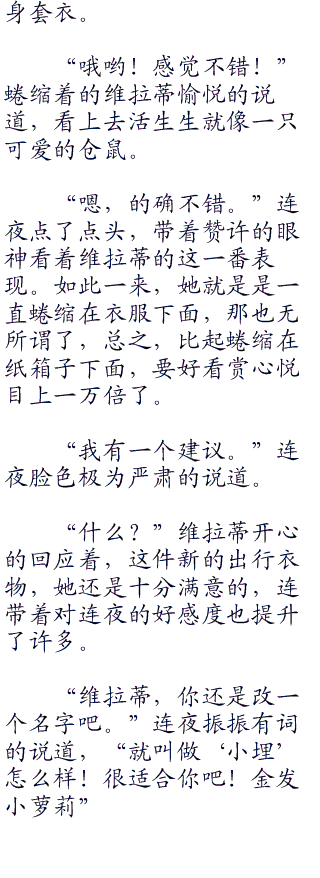 身套衣。
“哦哟！感觉不错！”
蜷缩着的维拉蒂愉悦的说
道，看上去活生生就像一只
可爱的仓鼠。
“嗯，的确不错。”连
夜点了点头，带着赞许的眼
神看着维拉蒂的这一番表
现。如此一来，她就是是一
直蜷缩在衣服下面，那也无
所谓了，总之，比起蜷缩在
纸箱子下面，要好看赏心悦
目上一万倍了。
“我有一个建议。”连
夜脸色极为严肃的说道。
“什么？”维拉蒂开心
的回应着，这件新的出行衣
物，她还是十分满意的，连
带着对连夜的好感度也提升
了许多。
“维拉蒂，你还是改一
个名字吧。”连夜振振有词
的说道，“就叫做‘小埋’
怎么样！很适合你吧！金发
小萝莉”